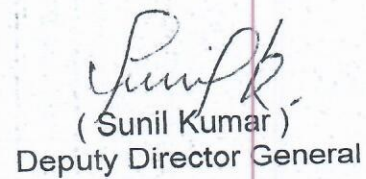 Sunil K.
( Sunil Kumar )
Deputy Director General